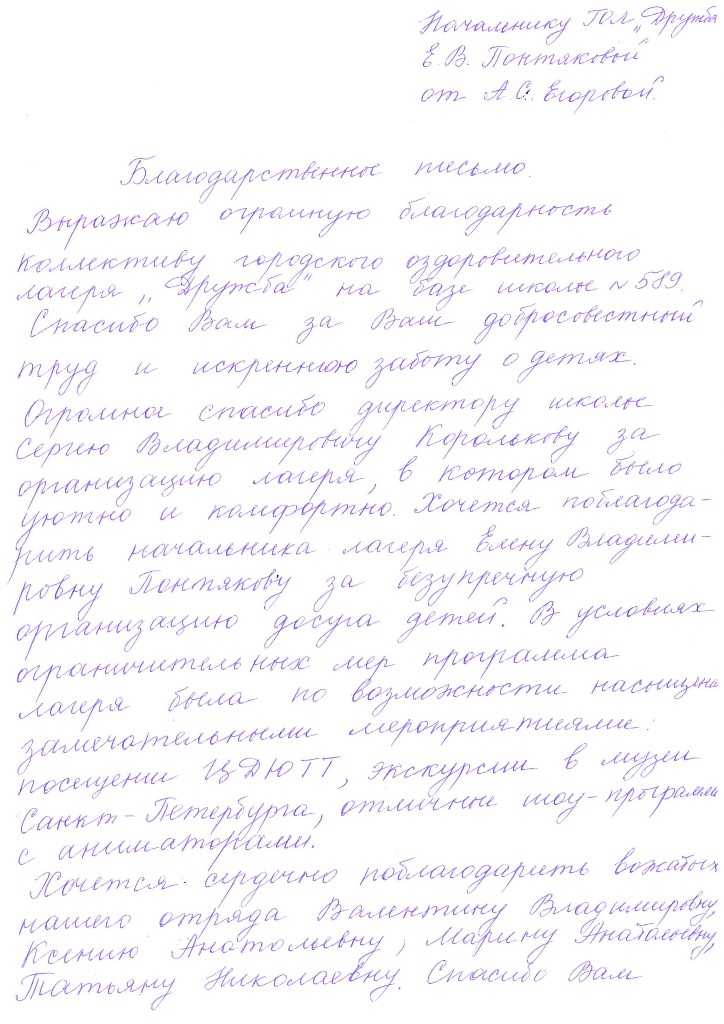 Начальнику ГОЛ „Дружба
Е. В. Понтяковой
от А.С. Егоровой.
Благодарственное письмо.
Выражаю огромную благодарность
коллективу городского оздоровительного
лагеря „Дружба" на базе школы №589.
Спасибо Вам за Ваш добросовестный
труд и искреннюю заботу о детях.
Огромное спасибо директору школы
Сергею Владимировичу Королькову за
организацию лагеря, в котором было
уютно и комфортно. Хочется поблагода-
рить начальника лагеря Елену Владими-
ровну Понтякову за безупречную
организацию досуга детей. В условиях
ограничительных мер программа
лагеря была по возможности насыщена
замечательными мероприятиями:
посещении ЦДЮТТ, экскурсии в музеи
Санкт-Петербурга, отличные шоу-программы
с аниматорами.
Хочется сердечно поблагодарить вожатых
нашего отряда Валентину Владимировну,
Ксению Анатольевну, Марину Анатольевну,
Татьяну Николаевну. Спасибо Вам